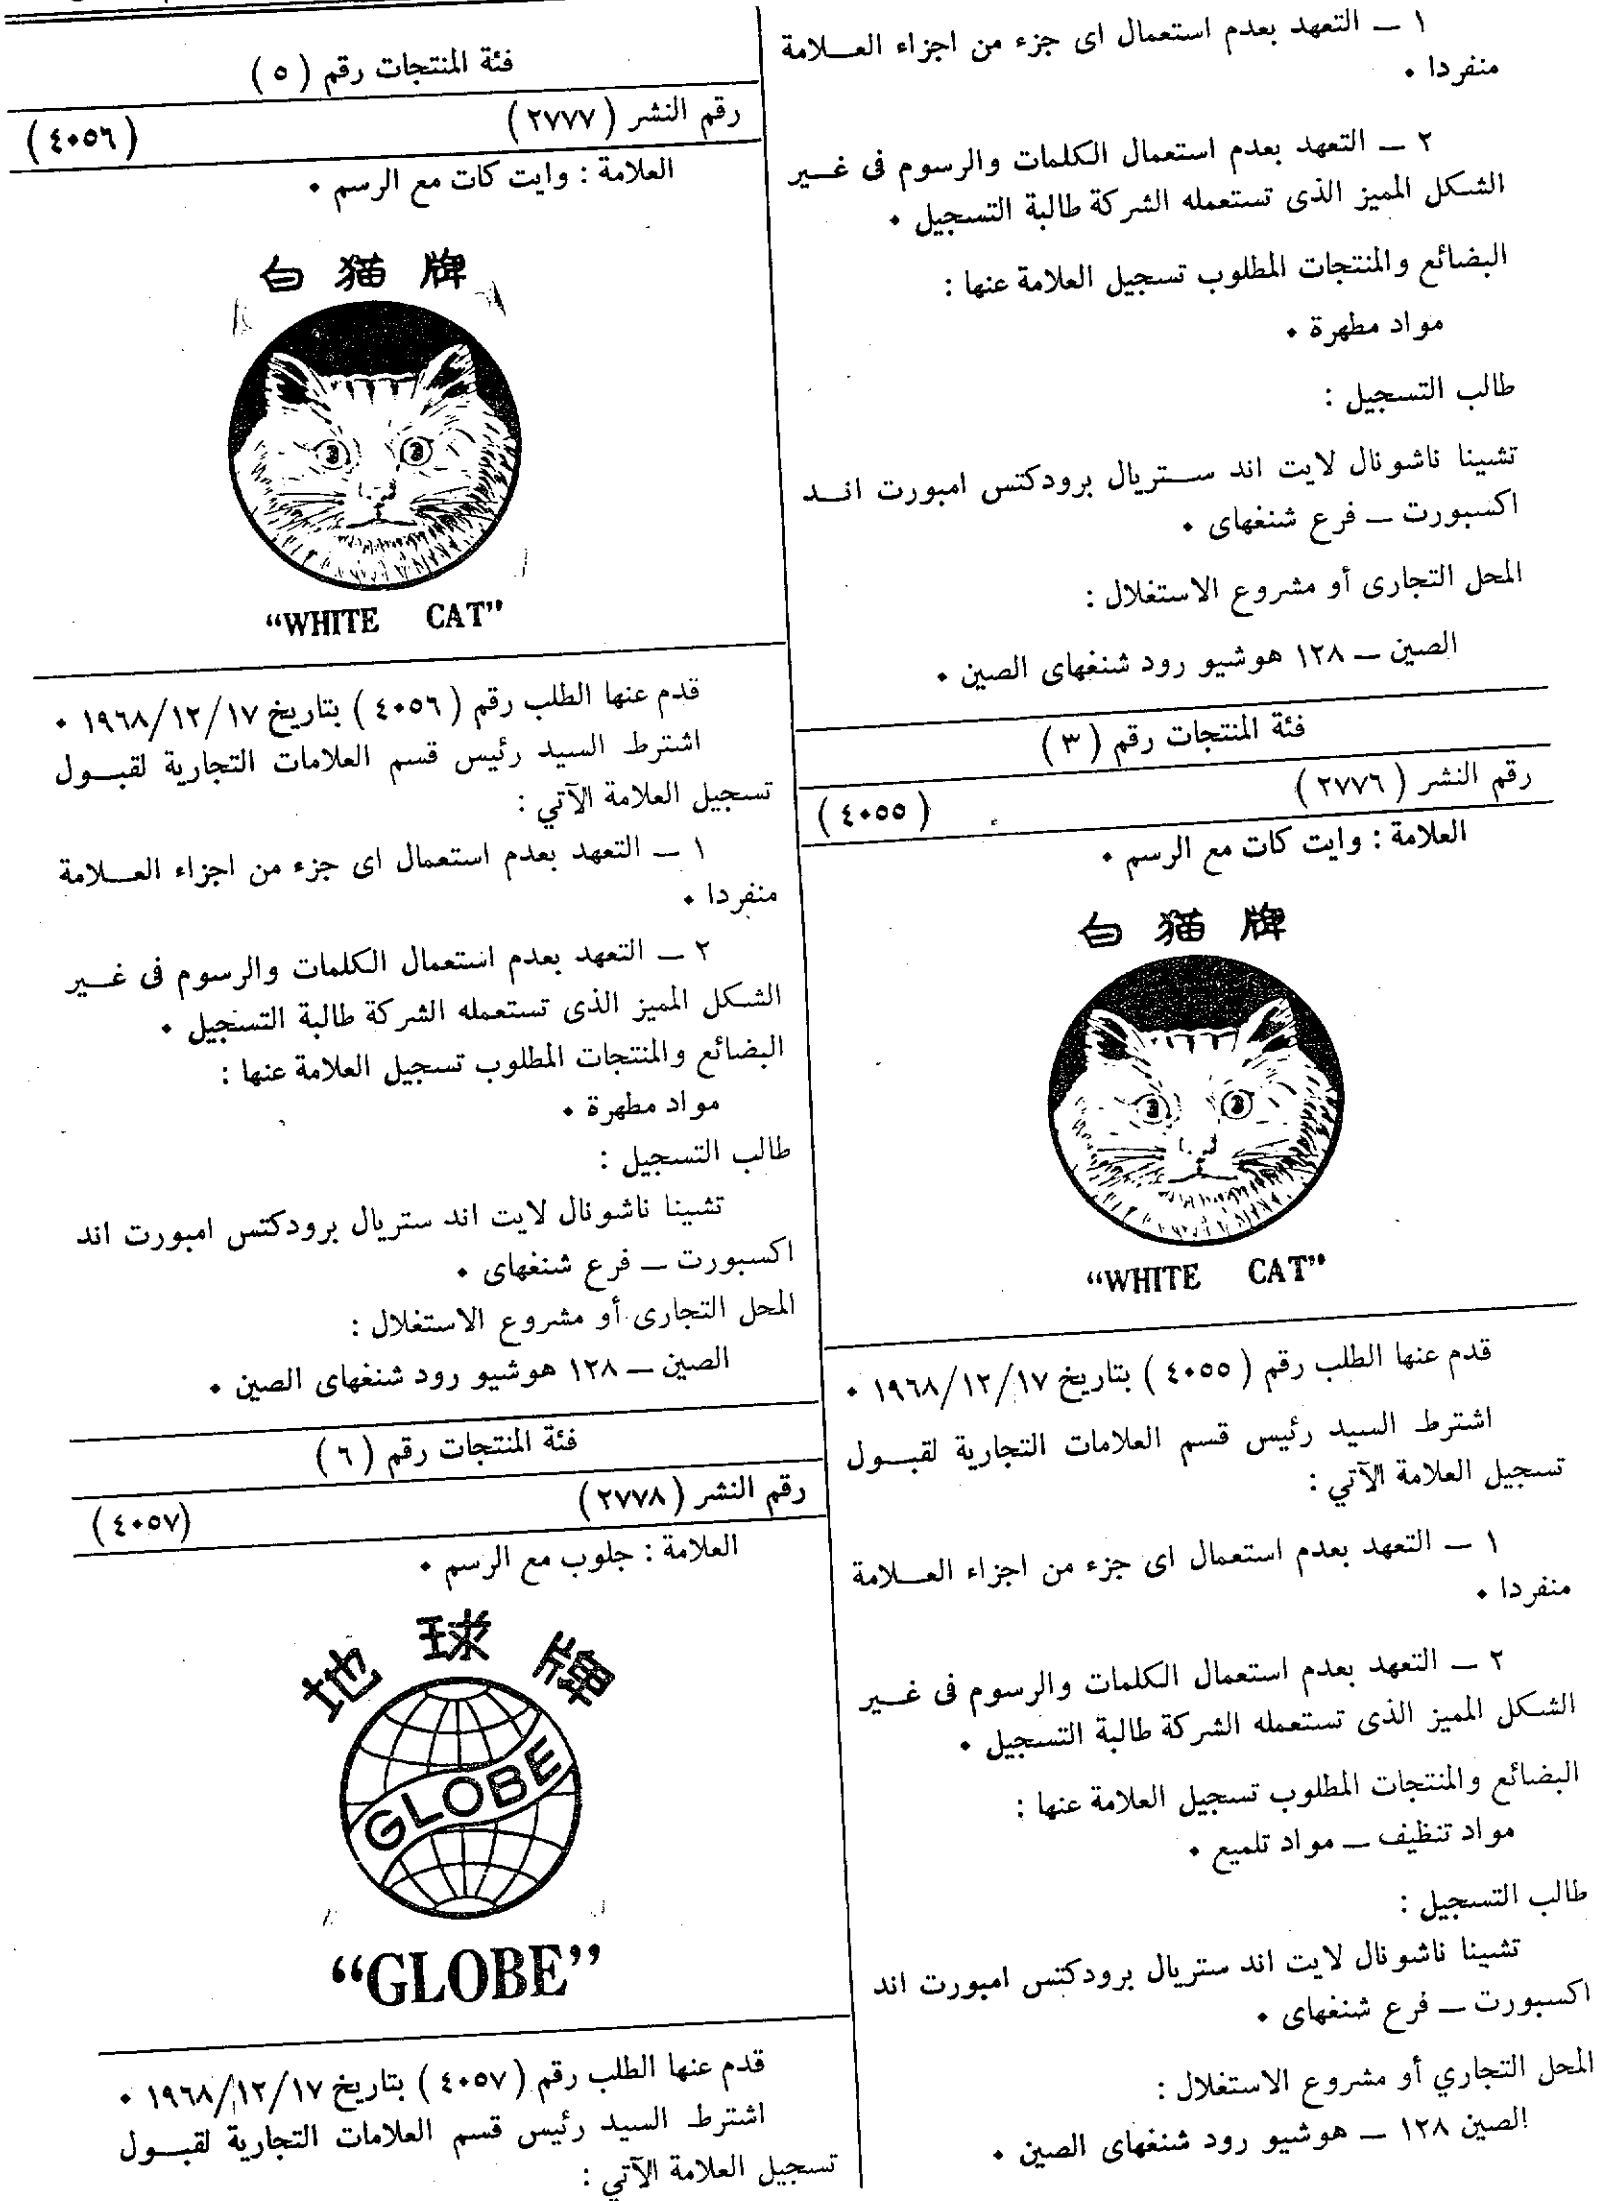 ١ ــ التعهد بعدم استعمال اى جزء من اجزاء العـــلامة
منفردا ٠
٢ ــ التعهد بعدم استعمال الكلمات والرسوم فى غـــير
الشكل المميز الذى تستعمله الشركة طالبة التسجيل ٠
البضائع والمنتجات المطلوب تسجيل العلامة عنها :
مواد مطهرة ٠
طالب التسجيل :
تشينا ناشونال لايت اند ســتريال برودكتس امبورت انــد
اكسبورت ــ فرع شنغهاى ٠
المحل التجارى أو مشروع الاستغلال :
الصين ــ ١٢٨ هوشيو رود شنغهاى الصين ٠
فئة المنتجات رقم ( ٣ )
رقم النشر ( ٢٧٧٦ ) ( ٤٠٥٥ )
العلامة : وايت كات مع الرسم ٠
白 猫 牌
“WHITE CAT”
قدم عنها الطلب رقم ( ٤٠٥٥ ) بتاريخ ١٩٦٨/١٢/١٧ ٠
اشترط السيد رئيس قسم العلامات التجارية لقبـــول
تسجيل العلامة الآتي :
١ ــ التعهد بعدم استعمال اى جزء من اجزاء العـــلامة
منفردا ٠
٢ ــ التعهد بعدم استعمال الكلمات والرسوم فى غـــير
الشكل المميز الذى تستعمله الشركة طالبة التسجيل ٠
البضائع والمنتجات المطلوب تسجيل العلامة عنها :
مواد تنظيف ــ مواد تلميع ٠
طالب التسجيل :
تشينا ناشونال لايت اند ستريال برودكتس امبورت اند
اكسبورت ــ فرع شنغهاى ٠
المحل التجاري أو مشروع الاستغلال :
الصين ١٢٨ ــ هوشيو رود شنغهاى الصين ٠
فئة المنتجات رقم ( ٥ )
رقم النشر ( ٢٧٧٧ ) ( ٤٠٥٦ )
العلامة : وايت كات مع الرسم ٠
白 猫 牌
“WHITE CAT”
قدم عنها الطلب رقم ( ٤٠٥٦ ) بتاريخ ١٩٦٨/١٢/١٧ ٠
اشترط السيد رئيس قسم العلامات التجارية لقبـــول
تسجيل العلامة الآتي :
١ ــ التعهد بعدم استعمال اى جزء من اجزاء العـــلامة
منفردا ٠
٢ ــ التعهد بعدم استعمال الكلمات والرسوم فى غـــير
الشكل المميز الذى تستعمله الشركة طالبة التسجيل ٠
البضائع والمنتجات المطلوب تسجيل العلامة عنها :
مواد مطهرة ٠
طالب التسجيل :
تشينا ناشونال لايت اند ستريال برودكتس امبورت اند
اكسبورت ــ فرع شنغهاى ٠
المحل التجارى أو مشروع الاستغلال :
الصين ــ ١٢٨ هوشيو رود شنغهاى الصين ٠
فئة المنتجات رقم ( ٦ )
رقم النشر ( ٢٧٧٨ ) (٤٠٥٧ )
العلامة : جلوب مع الرسم ٠
地 球 牌
GLOBE
“GLOBE”
قدم عنها الطلب رقم ( ٤٠٥٧ ) بتاريخ ١٩٦٨/١٢/١٧ ٠
اشترط السيد رئيس قسم العلامات التجارية لقبـــول
تسجيل العلامة الآتي :